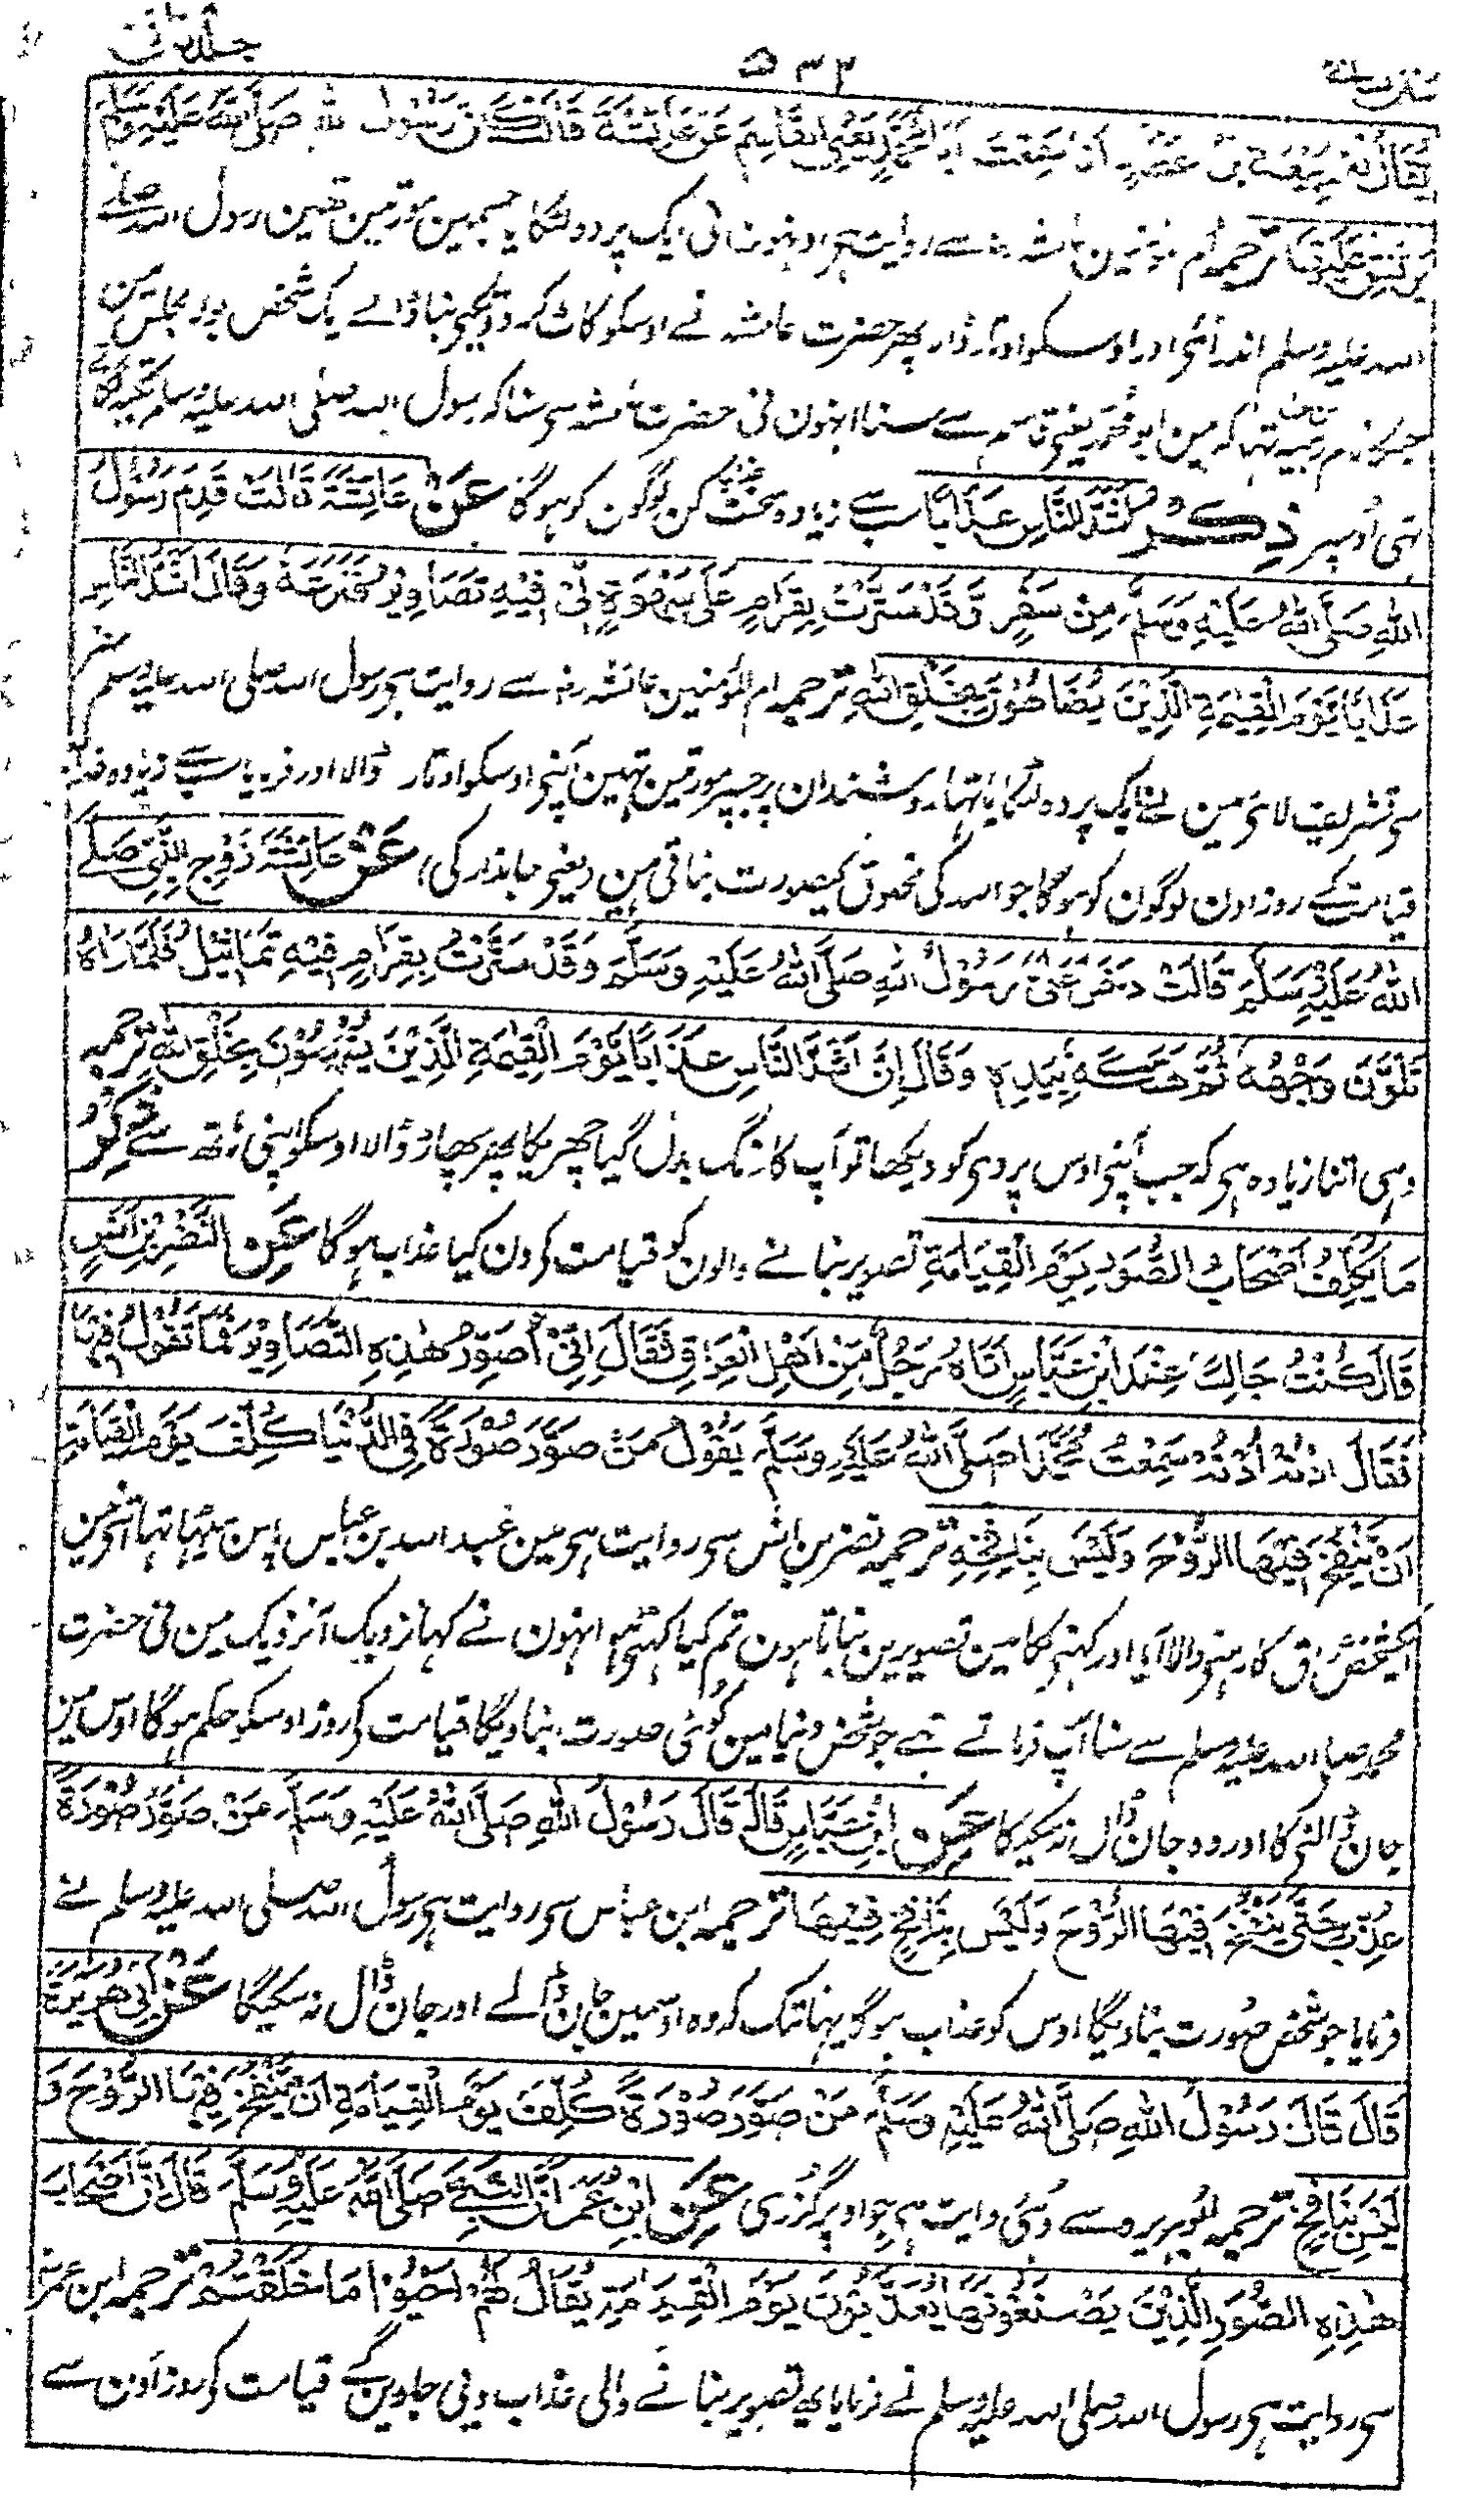 ۵۳۳
يُقَالُ لَهُ رَبِيْعَةُ بْنُ عَطَاءٍ أَنَا سَمِعْتُ أَبَا مُحَمَّدٍ يَعْنِى الْقَاسِمَ عَنْ عَائِشَةَ قَالَتْ كَانَ رَسُوْلُ اللهِ صَلَّى اللهُ عَلَيْهِ وَسَلَّمَ
يَرْتَفِقُ عَلَيْهِمَا ترجمہ ام المومنین عائشہ رض سے روایت ہی اونہون نی ایک پردہ لٹکایا جسمین مورتین تھین رسول اللہ صلے
اللہ علیہ وسلم اندر آئی اور اوسکو اوتار ڈالا پھر حضرت عائشہ نے اوسکو کاٹ کر دو تکیی بنا ڈالے یک شخص بولا مجلس مین
جسکا نام ربیعہ تہا کہ مین ابو محمد یعنی قاسم سے سنا انہون نی حضرت عائشہ سی سنا کہ رسول اللہ صلی اللہ علیہ وسلم تکیہ لگاتے
تہی اوسپر ذِكْرُ اَشَدِّ النَّاسِ عَذَابًا سب سے زیادہ سخت عذاب کن لوگون کو ہوگا عَنْ عَائِشَةَ قَالَتْ قَدِمَ رَسُوْلُ
اللهِ صَلَّى اللهُ عَلَيْهِ وَسَلَّمَ مِنْ سَفَرٍ وَّقَدْ سَتَرْتُ بِقِرَامٍ عَلٰى سَهْوَةٍ لِّىْ فِيْهِ تَصَاوِيْرُ فَنَزَعَهٗ وَقَالَ اَشَدُّ النَّاسِ
عَذَابًا يَوْمَ الْقِيٰمَةِ الَّذِيْنَ يُضَاهُوْنَ بِخَلْقِ اللهِ ترجمہ ام المومنین عائشہ رض سے روایت ہی رسول اللہ صلی اللہ علیہ وسلم سفر
سی تشریف لائی مین نے ایک پردہ لٹکایا تہا روشندان پر جسپر مورتین تہین آپنی اوسکو اوتار ڈالا اور فرمایا سب سے زیادہ عذاب
قیامت کے روز اون لوگون کو ہوگا جو اللہ کی مخلوق کیصورت بناتی ہین (یعنی جاندار کی) عَنْ عَائِشَةَ زَوْجِ النَّبِىِّ صَلَّے
اللهُ عَلَيْهِ وَسَلَّمَ قَالَتْ دَخَلَ عَلَىَّ رَسُوْلُ اللهِ صَلَّى اللهُ عَلَيْهِ وَسَلَّمَ وَقَدْ سَتَرْتُ بِقِرَامٍ فِيْهِ تَمَاثِيْلُ فَلَمَّا رَاٰهُ
تَلَوَّنَ وَجْهُهٗ ثُمَّ هَتَكَهٗ بِيَدِهٖ وَقَالَ اِنَّ اَشَدَّ النَّاسِ عَذَابًا يَوْمَ الْقِيٰمَةِ الَّذِيْنَ يُشَبِّهُوْنَ بِخَلْقِ اللهِ ترجمہ
وہی اتنا زیادہ ہی کہ جب آپنی اوس پردی کو دیکھا تو آپ کا رنگ بدل گیا چھریکا پھر پھاڑ ڈالا اوسکو اپنی ہاتھ سے ذِكْرُ
مَا يُكَلَّفُ اَصْحَابُ الصُّوَرِ يَوْمَ الْقِيَامَةِ تصویر بنانے والون کو قیامت کی دن کیا عذاب ہوگا عَنِ النَّضْرِ بْنِ اَنَسٍ
قَالَ كُنْتُ جَالِسًا عِنْدَ ابْنِ عَبَّاسٍ اَتَاهُ رَجُلٌ مِّنْ اَهْلِ الْعِرَاقِ فَقَالَ اِنِّىْ اُصَوِّرُ هٰذِهِ التَّصَاوِيْرَ فَمَا تَقُوْلُ فِيْهَا
فَقَالَ ادْنُهْ اُدْنُهْ سَمِعْتُ مُحَمَّدًا صَلَّى اللهُ عَلَيْهِ وَسَلَّمَ يَقُوْلُ مَنْ صَوَّرَ صُوْرَةً فِى الدُّنْيَا كُلِّفَ يَوْمَ الْقِيَامَةِ
اَنْ يَّنْفُخَ فِيْهَا الرُّوْحَ وَلَيْسَ بِنَافِخِهٖ ترجمہ نضر بن انس سی روایت ہی مین عبد اللہ بن عباس پاس بیٹھا تہا اتنی مین
ایکشخص عراق کا رہنی والا آیا اور کہنی لگا مین تصویرین بناتا ہون تم کیا کہتی ہو انہون نے کہا نزدیک آ نزدیک مین نی حضرت
محمد صلی اللہ علیہ وسلم سے سنا آپ فرماتے تہے جو شخص دنیا مین کوئی صورت بنا ویگا قیامت کی روز اوسکو حکم ہوگا اوس مین
جان ڈالنی کا اور وہ جان ڈال نہ سکیگا عَنِ ابْنِ عَبَّاسٍ قَالَ قَالَ رَسُوْلُ اللهِ صَلَّى اللهُ عَلَيْهِ وَسَلَّمَ مَنْ صَوَّرَ صُوْرَةً
عُذِّبَ حَتّٰى يَنْفُخَ فِيْهَا الرُّوْحَ وَلَيْسَ بِنَافِخٍ فِيْهَا ترجمہ ابن عباس سی روایت ہی رسول اللہ صلی اللہ علیہ وسلم نے
فرمایا جو شخص صورت بنا ویگا اوس کو عذاب ہوگا یہانتک کہ وہ اوسمین جان ڈالے اور جان ڈال نہ سکیگا عَنْ اَبِىْ هُرَيْرَةَ
قَالَ قَالَ رَسُوْلُ اللهِ صَلَّى اللهُ عَلَيْهِ وَسَلَّمَ مَنْ صَوَّرَ صُوْرَةً كُلِّفَ يَوْمَ الْقِيَامَةِ اَنْ يَّنْفُخَ فِيْهَا الرُّوْحَ وَ
لَيْسَ بِنَافِخٍ ترجمہ ابوہریرہ سے وہی روایت ہی جو اوپر گزری عَنِ ابْنِ عُمَرَ اَنَّ النَّبِىَّ صَلَّى اللهُ عَلَيْهِ وَسَلَّمَ قَالَ اِنَّ اَصْحَابَ
هٰذِهِ الصُّوَرِ الَّذِيْنَ يَصْنَعُوْنَهَا يُعَذَّبُوْنَ يَوْمَ الْقِيَامَةِ يُقَالُ لَهُمْ اَحْيُوْا مَا خَلَقْتُمْ ترجمہ ابن عمر
سی روایت ہی رسول اللہ صلی اللہ علیہ وسلم نے فرمایا یہ تصویر بنانے والی عذاب دئی جاوین گے قیامت کی روز اون سے